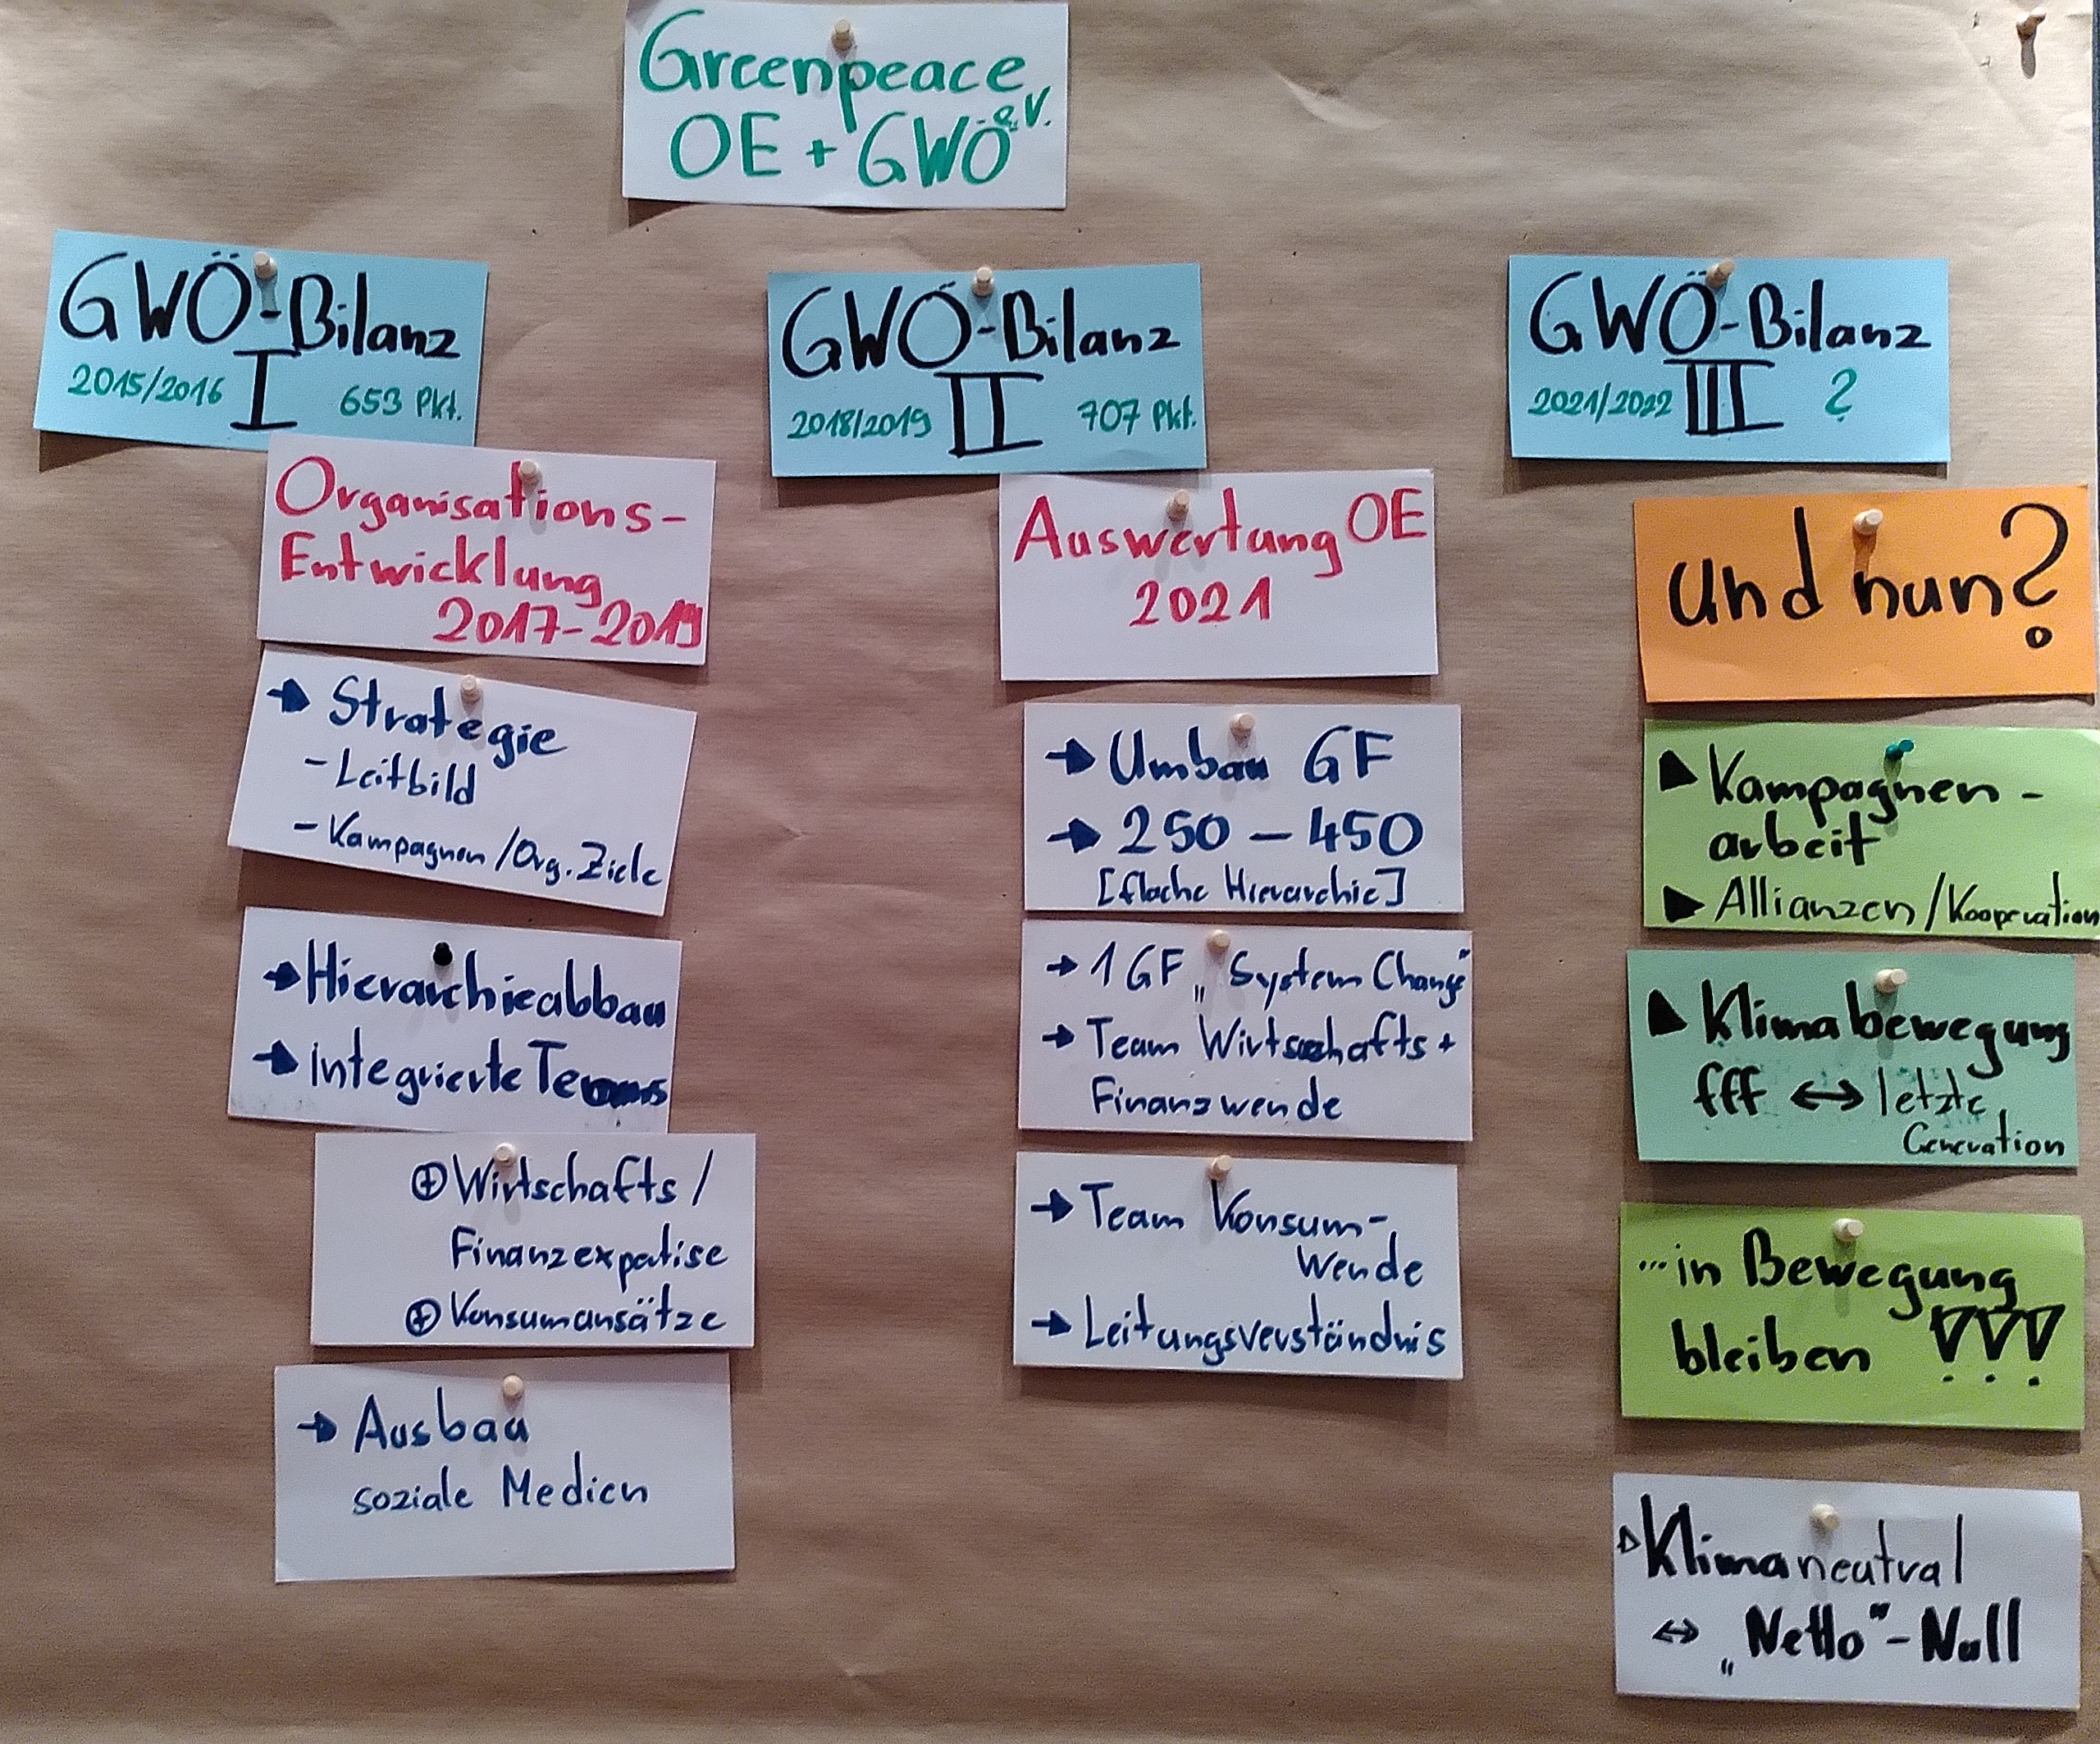 Greenpeace e.V.
OE + GWÖ
GWÖ-Bilanz
I
2015/2016 653 Pkt.
Organisations-
Entwicklung
2017-2019
→ Strategie
- Leitbild
- Kampagnen/Org. Ziele
→ Hierarchieabbau
→ Integrierte Teams
⊕ Wirtschafts/
Finanzexpertise
⊕ Konsumansätze
→ Ausbau
soziale Medien
GWÖ-Bilanz
II
2018/2019 707 Pkt.
Auswertung OE
2021
→ Umbau GF
→ 250 – 450
[flache Hierarchie]
→ 1 GF „System Change"
→ Team Wirtschafts +
Finanzwende
→ Team Konsum-
Wende
→ Leitungsverständnis
GWÖ-Bilanz
III
2021/2022 ?
und nun?
▶ Kampagnen-
arbeit
▶ Allianzen/Kooperation
▶ Klimabewegung
fff ↔ letzte
Generation
...in Bewegung
bleiben !!!
▷ Klimaneutral
↔ „Netto"-Null